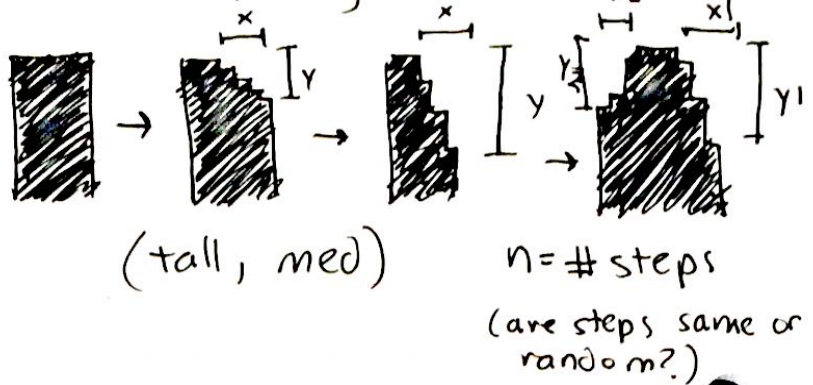 x x x1
Y Y Y1
(tall, med) n = # steps
(are steps same or
random?)